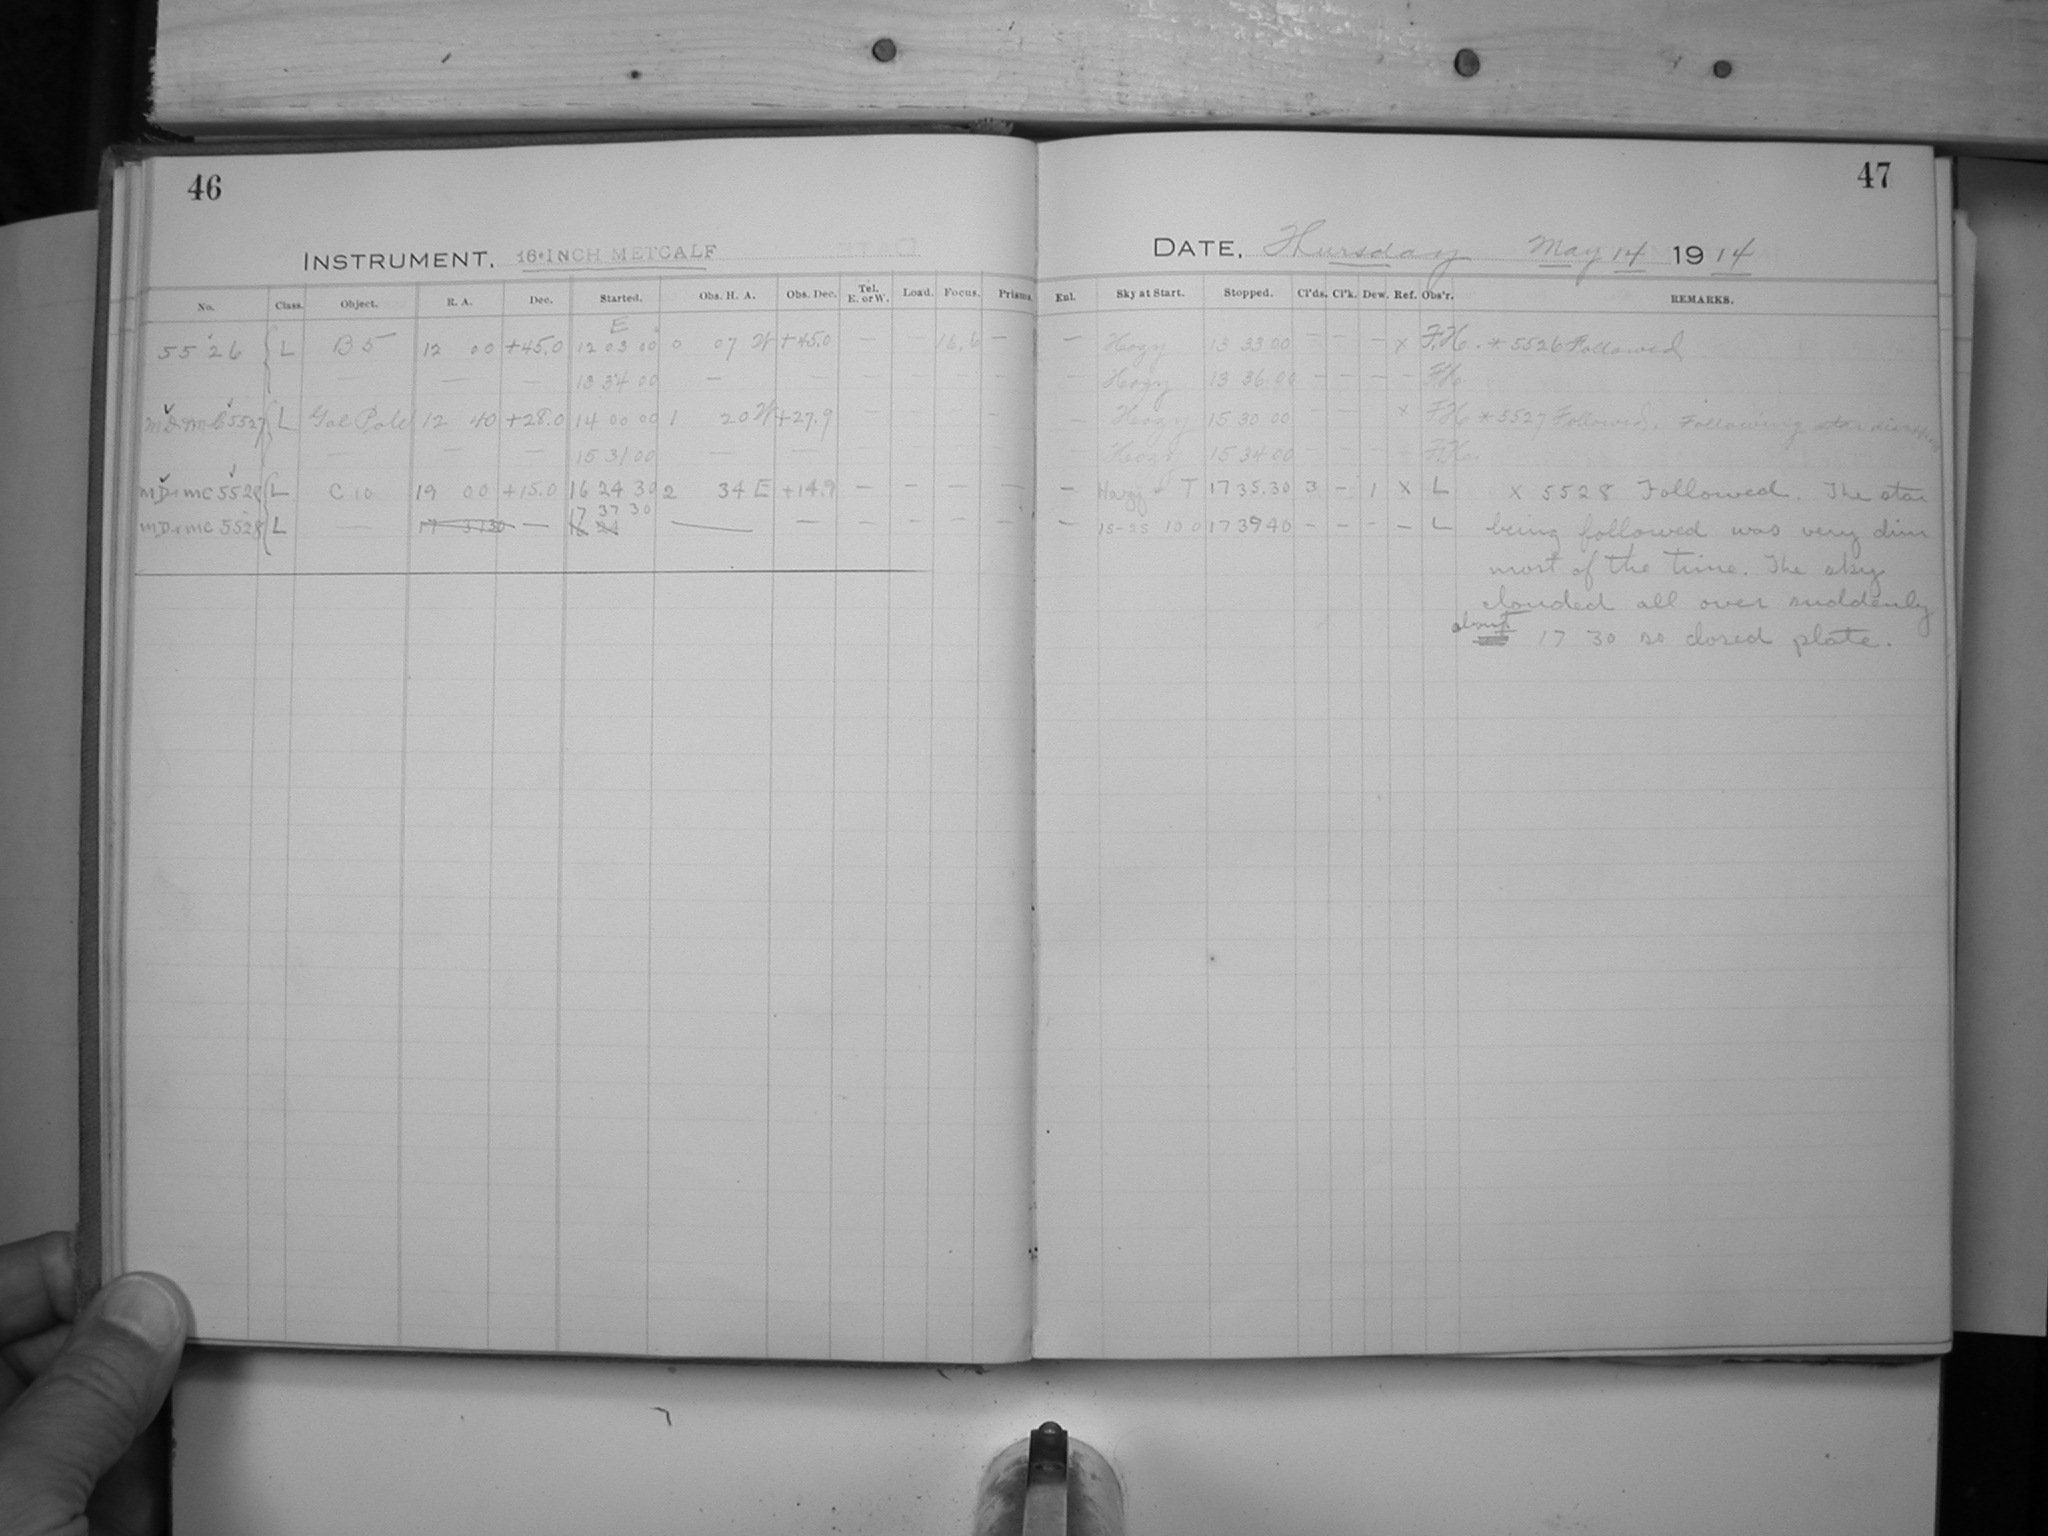 46
INSTRUMENT. 16-INCH METCALF
No. Class. Object. R. A. Dec. Started. Obs. H. A. Obs. Dec. Tel. E. or W. Load. Focus. Prisms.
E
5526 L B5 12 00 +45.0 12 03 00 0 07 W +45.0 — 16.6 —
— — — 13 34 00 — — — — — —
MD+MC 5527 L Gal Pole 12 40 +28.0 14 00 00 1 20 W +27.9 — — — —
— — — 15 31 00 — — — — — —
MD+MC 5528 L C10 19 00 +15.0 16 24 30 2 34 E +14.9 — — — —
MD+MC 5528 L — 17 37 30 — 17 37 30 — — — — — —
47
DATE, Thursday May 14 1914
Enl. Sky at Start. Stopped. Cl'ds. Cl'k. Dew. Ref. Obs'r. REMARKS.
— Hazy 13 33 00 — — — x F.H. * 5526 Followed
— Hazy 13 36 00 — — — — F.H.
— Hazy 15 30 00 — — x F.H. * 5527 Followed. Following star
— Hazy 15 34 00 — — — — F.H.
— Hazy T 17 35.30 3 — 1 X L X 5528 Followed. The star
— 15-25 100 17 39 40 — — — — L being followed was very dim
most of the time. The sky
clouded all over suddenly
about 17 30 so closed plate.